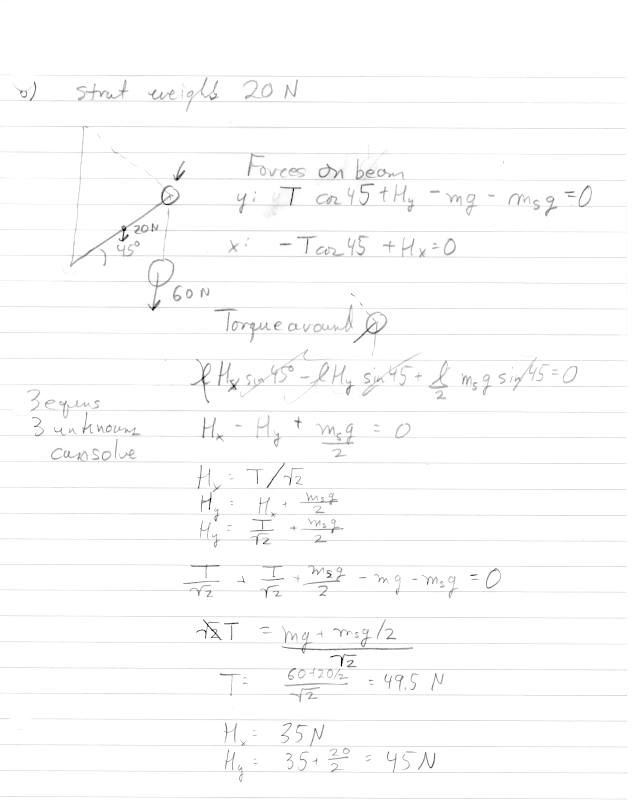 b) strut weighs 20 N
Forces on beam
y: T cos 45 + Hy - mg - msg = 0
20N
45°
x: - T cos 45 + Hx = 0
60 N
Torque around
l Hx sin 45° - l Hy sin 45 + l/2 msg sin 45 = 0
3 equns
3 unknouns
can solve
Hx - Hy + msg/2 = 0
Hx = T/√2
Hy = Hx + msg/2
Hy = T/√2 + msg/2
T/√2 + T/√2 + msg/2 - mg - msg = 0
T = (mg + msg/2)/√2
T = (60+20/2)/√2 = 49.5 N
Hx = 35 N
Hy = 35 + 20/2 = 45 N